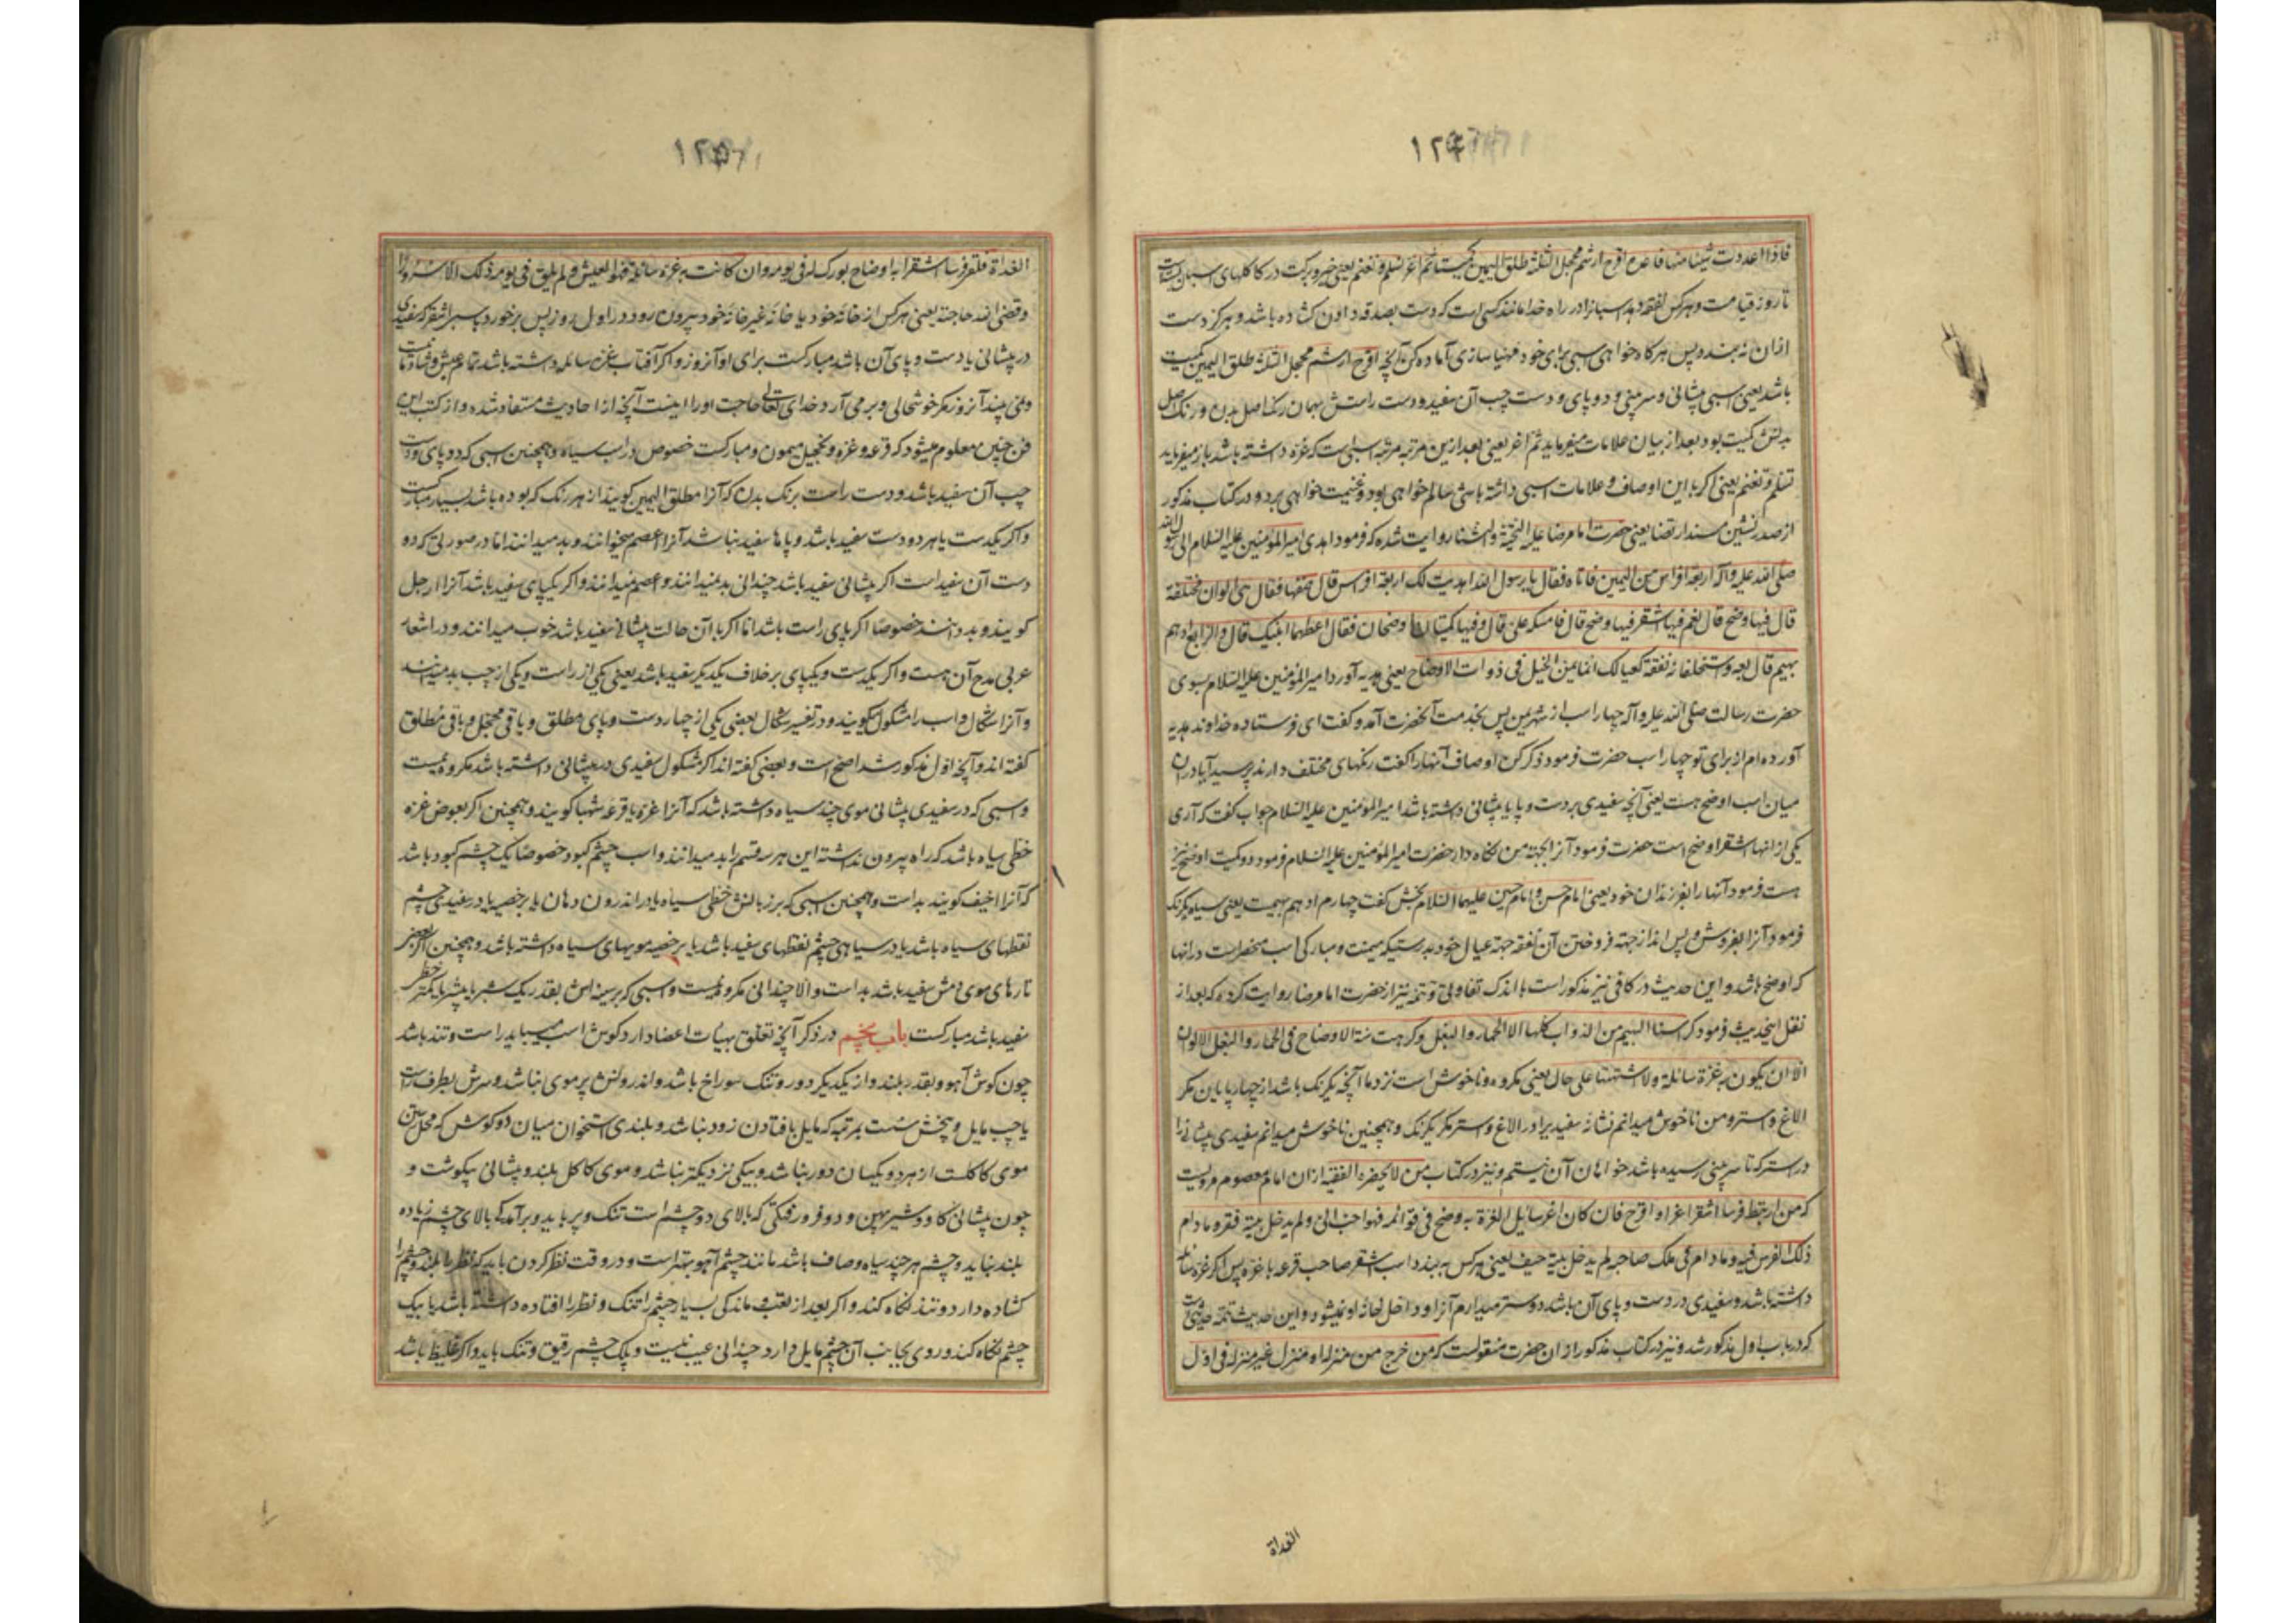 فاذا اعددت شیئا منها فاعده اقرح ارثم محجل الثلثة طلق الیمین کمیتا ثم اغر تسلم و تغنم یعنی خیر و برکت در کاکلهای اسبان است
تا روز قیامت و هر کس نفقه دهد اسبانرا در راه خدا مانند کسی است که دست بصدقه دادن کشاده باشد و هرگز دست
ازان نه بندد پس هر کاه خواهی اسبی برای خود مهیا سازی آماده کن آنچه اقرح ارثم محجل الثلثة طلق الیمین کمیت
باشد یعنی اسبی پیشانی و سر بینی و دو پای و دست چپ آن سفید و دست راستش بهمان رنک اصل بدن و رنک اصل
بدنش کمیت بود بعد از بیان علامات میفرماید ثم اغر یعنی بعد ازین مرتبه مرتبه اسبی است که غره داشته باشد باز میفرماید
تسلم و تغنم یعنی اکر با این اوصاف و علامات اسبی داشته باشی سالم خواهی بود و غنیمت خواهی برد و در کتاب مذکور
از صدر نشین مسند ارتضا یعنی حضرت امام رضا علیه التحیة و الثنا روایت شده که فرمود اهدی امیر المؤمنین علیه السلام الی رسول الله
صلی الله علیه و آله اربعة افراس من الیمن فاتاه فقال یا رسول الله اهدیت لک اربعة افراس قال صفها فقال هی الوان مختلفة
قال فیها وضح قال نعم فیها اشقر فیها وضح قال فامسکه علی قال و فیها کمیتان اوضحان فقال اعطهما ابنیک قال و الرابع ادهم
بهیم قال بعه و استخلف به نفقة لعیالک انما یمن الخیل فی ذوات الاوضاح یعنی هدیه آورد امیر المؤمنین علیه السلام بسوی
حضرت رسالت صلی الله علیه و آله چهار اسب از شهر یمن پس بخدمت آنحضرت آمد و کفت ای فرستاده خداوند هدیه
آورده ام از برای تو چهار اسب حضرت فرمود ذکر کن اوصاف آنها را کفت رنکهای مختلف دارند پرسید آیا در ان
میان اسب اوضح هست یعنی آنچه سفیدی بر دست و پا یا پیشانی داشته باشد امیر المؤمنین علیه السلام جواب کفت که آری
یکی از انها اشقر اوضح است حضرت فرمود آنرا بجهة من نکاه دار حضرت امیر المؤمنین علیه السلام فرمود دو کمیت اوضح نیز
هست فرمود آنها را بفرزندان خود یعنی امام حسن و امام حسین علیهما السلام بخش کفت چهارم ادهم بهیمست یعنی سیاه یکرنک
فرمود آنرا بفروش و پس انداز جهة فروختن آن نفقه جهة عیال خود بدرستیکه میمنت و مبارکی اسب منحصر است در انها
که اوضح باشد و این حدیث در کافی نیز مذکور است با اندک تفاوتی و تتمه نیز از حضرت امام رضا روایت کرده که بعد از
نقل اینحدیث فرمود کرهنا البهیم من الدواب کلها الا الحمار و البغل و کرهت شیة الاوضاح فی الحمار و البغل الالوان
الا ان یکون به غرة سائلة و لا اشتهیها علی حال یعنی مکروه و ناخوش است نزد ما آنچه یکرنک باشد از چهار پایان مکر
الاغ و استر و من ناخوش میدانم نشانه سفید برا در الاغ و استر مکر یکرنک و همچنین ناخوش میدانم سفیدی پیشانی را
در استر که تا سر بینی رسیده باشد خواهان آن نیستم و نیز در کتاب من لا یحضره الفقیه از ان امام معصوم مرویست
که من ارتبط فرسا اشقر اغر او اقرح فان کان اغر سایل الغرة به وضح فی قوائمه فهو احب الی و لم یدخل بیته فقر ما دام
ذلک الفرس فیه و ما دام فی ملک صاحبه لم یدخل بیته حیف یعنی هر کس به بندد اسب اشقر صاحب قرعه با غره پس اکر غره سائله
داشته باشد و سفیدی در دست و پای آن باشد دوستر میدارم آنرا و داخل خانه او نمیشود و این حدیث تتمه حدیثی است
که در باب اول مذکور شد و نیز در کتاب مذکور از ان حضرت منقولست که من خرج من منزله او منزل غیر منزله فی اول
الغداة
الغداة فلقی فرسا اشقر به اوضاح بورک له فی یومه و ان کانت به غرة سائلة فهو العیش و لم یلق فی یومه ذلک الا سرورا
و قضی الله حاجته یعنی هر کس از خانه خود یا خانه غیر خانه خود بیرون رود در اول روز پس برخورد باسب اشقر که سفیدی
در پیشانی یا دست و پای آن باشد مبارکست برای او آنروز و اکر آفتاب غره سائله داشته باشد تمام عیش و شادمانیست
و نمی بیند آنروز مکر خوشحالی و بر می آرد خدای تعالی حاجت او را اینست آنچه از احادیث مستفاد شده و از کتب این
فن چنین معلوم میشود که قرعه و غره و تحجیل میمون و مبارکست خصوص در اسب سیاه و همچنین اسبی که دو پای و دست
چپ آن سفید باشد و دست راست برنک بدن که آنرا مطلق الیمین کویند از هر رنک که بوده باشد بسیار مبارکست
و اکر یکدست یا هر دو دست سفید باشد و پاها سفید نباشد آنرا اعصم میخوانند و بد میدانند اما در صورتی که دو
دست آن سفید است اکر پیشانی سفید باشد چندانی بد نمیدانند و اعصم نمیدانند و اکر یکپای سفید باشد آنرا ارجل
کویند و بد دانند خصوصا اکر پای راست باشد اما اکر با آن حالت پیشانی سفید باشد خوب میدانند و در اشعار
عربی مدح آن هست و اکر یکدست و یکپای بر خلاف یکدیکر سفید باشد یعنی یکی از راست و یکی از چپ بد میدانند
و آنرا شکال و اسب را مشکول میکویند و در تفسیر شکال بعضی یکی از چهار دست و پای مطلق و باقی محجل و باقی مطلق
کفته اند و آنچه اول مذکور شد اصح است و بعضی کفته اند اکر مشکول سفیدی در پیشانی داشته باشد مکروه نیست
و اسبی که در سفیدی پیشانی موی چند سیاه داشته باشد که آنرا غره یا قرعه شهبا کویند و همچنین اکر بعوض غره
خطی سیاه باشد که راه بیرون نداشته این هر سه قسم را بد میدانند و اسب چشم کبود خصوصا یک چشم کبود باشد
که آنرا اخیف کویند بد است و همچنین اسبی که بر زبانش خطی سیاه یا در اندرون دهان یا بر خصیه یا در سفیدی چشم
نقطهای سیاه باشد یا در سیاهی چشم نقطهای سفید باشد یا بر خصیه مویهای سیاه داشته باشد و همچنین اکر بعضی
تارهای موی دمش سفید باشد بد است و الا چندانی مکروه نیست و اسبی که بر سینه اش بقدر یک شبر یا بیشتر یا کمتر خطی
سفید باشد مبارکست باب پنجم در ذکر آنچه تعلق بهیئات اعضا دارد کوش اسب میباید راست و تند باشد
چون کوش آهو و بقدر بلند و از یکدیکر دور و تنک سوراخ باشد و اندرونش پر موی نباشد و سرش بطرف راست
یا چپ مایل و پخش سست بمرتبه که مایل بافتادن زود نباشد و بلندی استخوان میان دو کوش که محل رستن
موی کاکلست از هر دو یکسان دور نباشد و بیکی نزدیکتر نباشد و موی کاکل بلند و پیشانی بیکوشت و
چون پیشانی کاو و شیر پهن و دو فرو رفتکی که بالای دو چشم است تنک و پر باید و برآمدکی بالای چشم زیاده
بلند نباید و چشم هر چند سیاه و صاف باشد مانند چشم آهو بهتر است و در وقت نظر کردن باید که نظر را بلند و چشم را
کشاده دارد و تند نکاه کند و اکر بعد از تعب و ماندکی بسیار چشم را تنک و نظر را افتاده داشته باشد یا بیک
چشم نکاه کند و روی بجانب آن چشم مایل دارد چندانی عیب نیست و پلک چشم رقیق و تنک باید و اکر غلیظ باشد